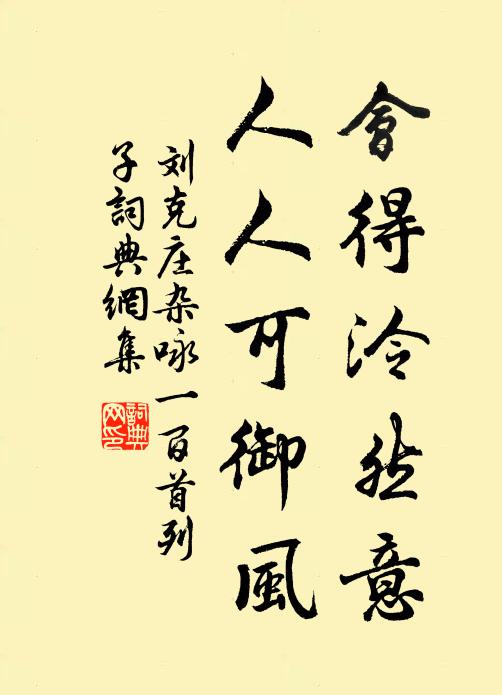 會得泠然意
人人可御風
刘克庄杂咏一百首列
子詞典網集
詞典
网印